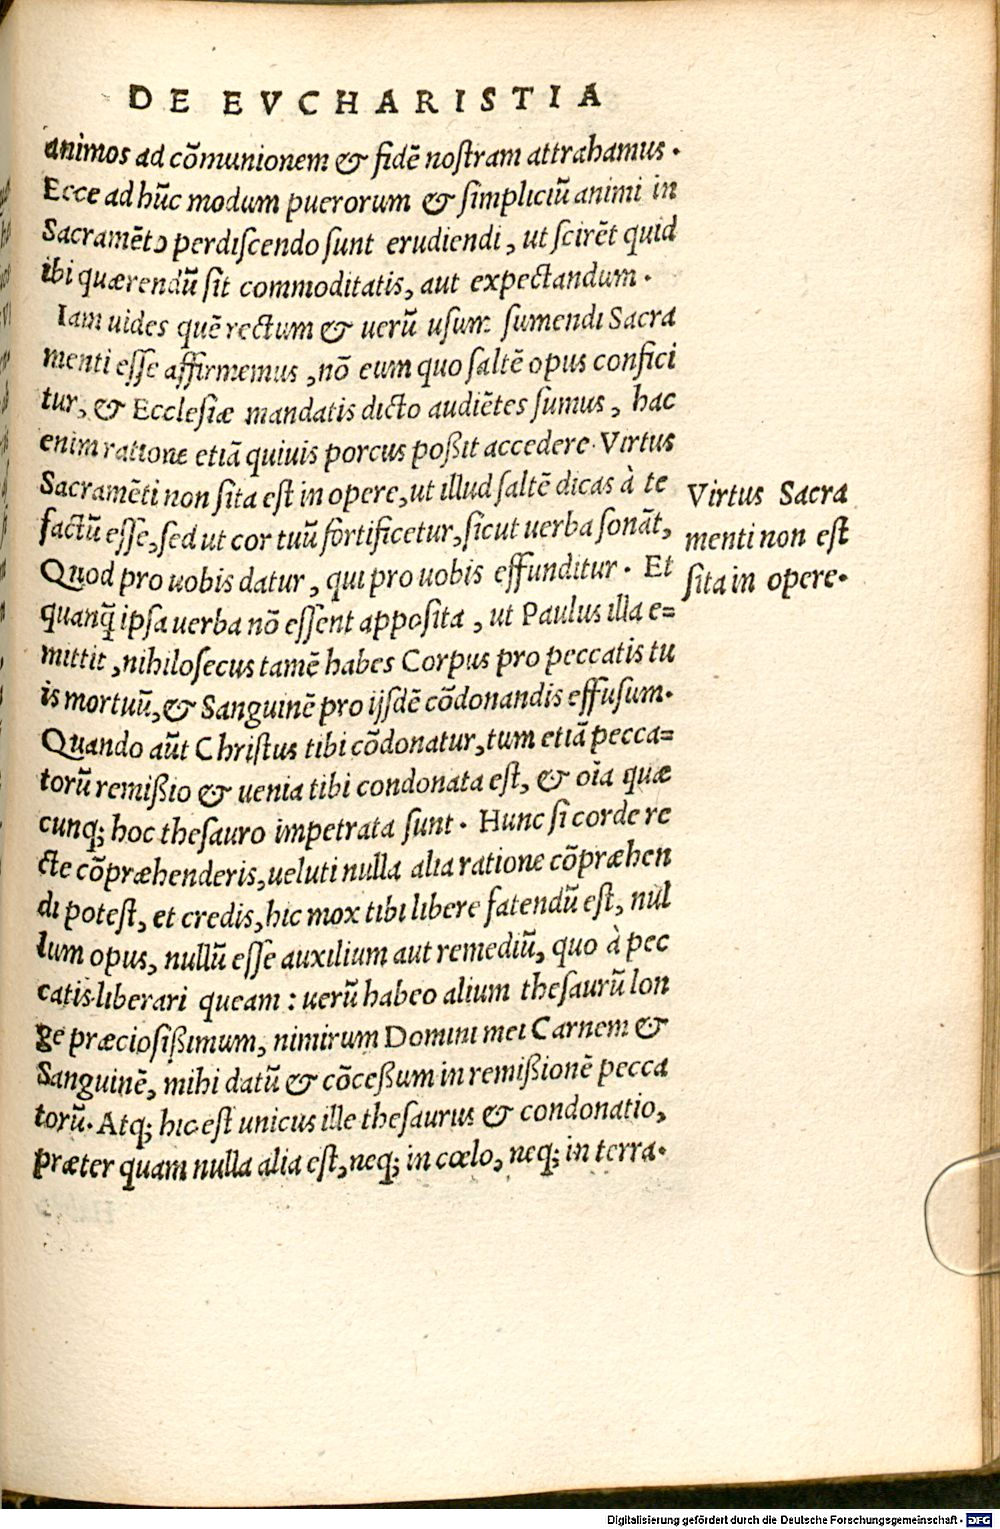 DE EVCHARISTIA
animos ad cõmunionem & fidẽ noſtram attrahamus.
Ecce ad hũc modum puerorum & ſimpliciũ animi in
Sacramẽto perdiſcendo ſunt erudiendi, ut ſcirẽt quid
ibi quærendũ ſit commoditatis, aut expectandum.
Iam uides quẽ rectum & uerũ uſum ſumendi Sacra
menti eſſe affirmemus, nõ eum quo ſaltẽ opus confici
tur, & Eccleſiæ mandatis dicto audiẽtes ſumus, hac
enim ratione etiã quiuis porcus poßit accedere. Virtus
Sacramẽti non ſita eſt in opere, ut illud ſaltẽ dicas à te
factũ eſſe, ſed ut cor tuũ fortificetur, ſicut uerba ſonãt,
Quod pro uobis datur, qui pro uobis effunditur. Et
quanq̃ ipſa uerba nõ eſſent appoſita, ut Paulus illa e=
mittit, nihiloſecus tamẽ habes Corpus pro peccatis tu
is mortuũ, & Sanguinẽ pro ijſdẽ cõdonandis effuſum.
Quando aũt Chriſtus tibi cõdonatur, tum etiã pecca=
torũ remißio & uenia tibi condonata eſt, & oĩa quæ
cunq; hoc theſauro impetrata ſunt. Hunc ſi corde re
cte cõpræhenderis, ueluti nulla alia ratione cõpræhen
di poteſt, et credis, hic mox tibi libere fatendũ eſt, nul
lum opus, nullũ eſſe auxilium aut remediũ, quo à pec
catis liberari queam: uerũ habeo alium theſaurũ lon
ge præcioſißimum, nimirum Domini mei Carnem &
Sanguinẽ, mihi datũ & cõceßum in remißionẽ pecca
torũ. Atq; hic eſt unicus ille theſaurus & condonatio,
præter quam nulla alia eſt, neq; in cœlo, neq; in terra.
Virtus Sacra
menti non eſt
ſita in opere.
Digitalisierung gefördert durch die Deutsche Forschungsgemeinschaft - DFG